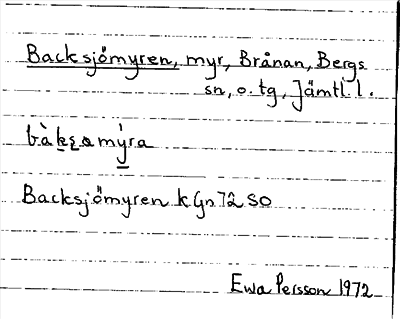 Backsjömyren, myr, Brånan, Bergs
sn, o. tg, Jämtl. l.
Backsjömyren kGn72 SO
Ewa Persson 1972